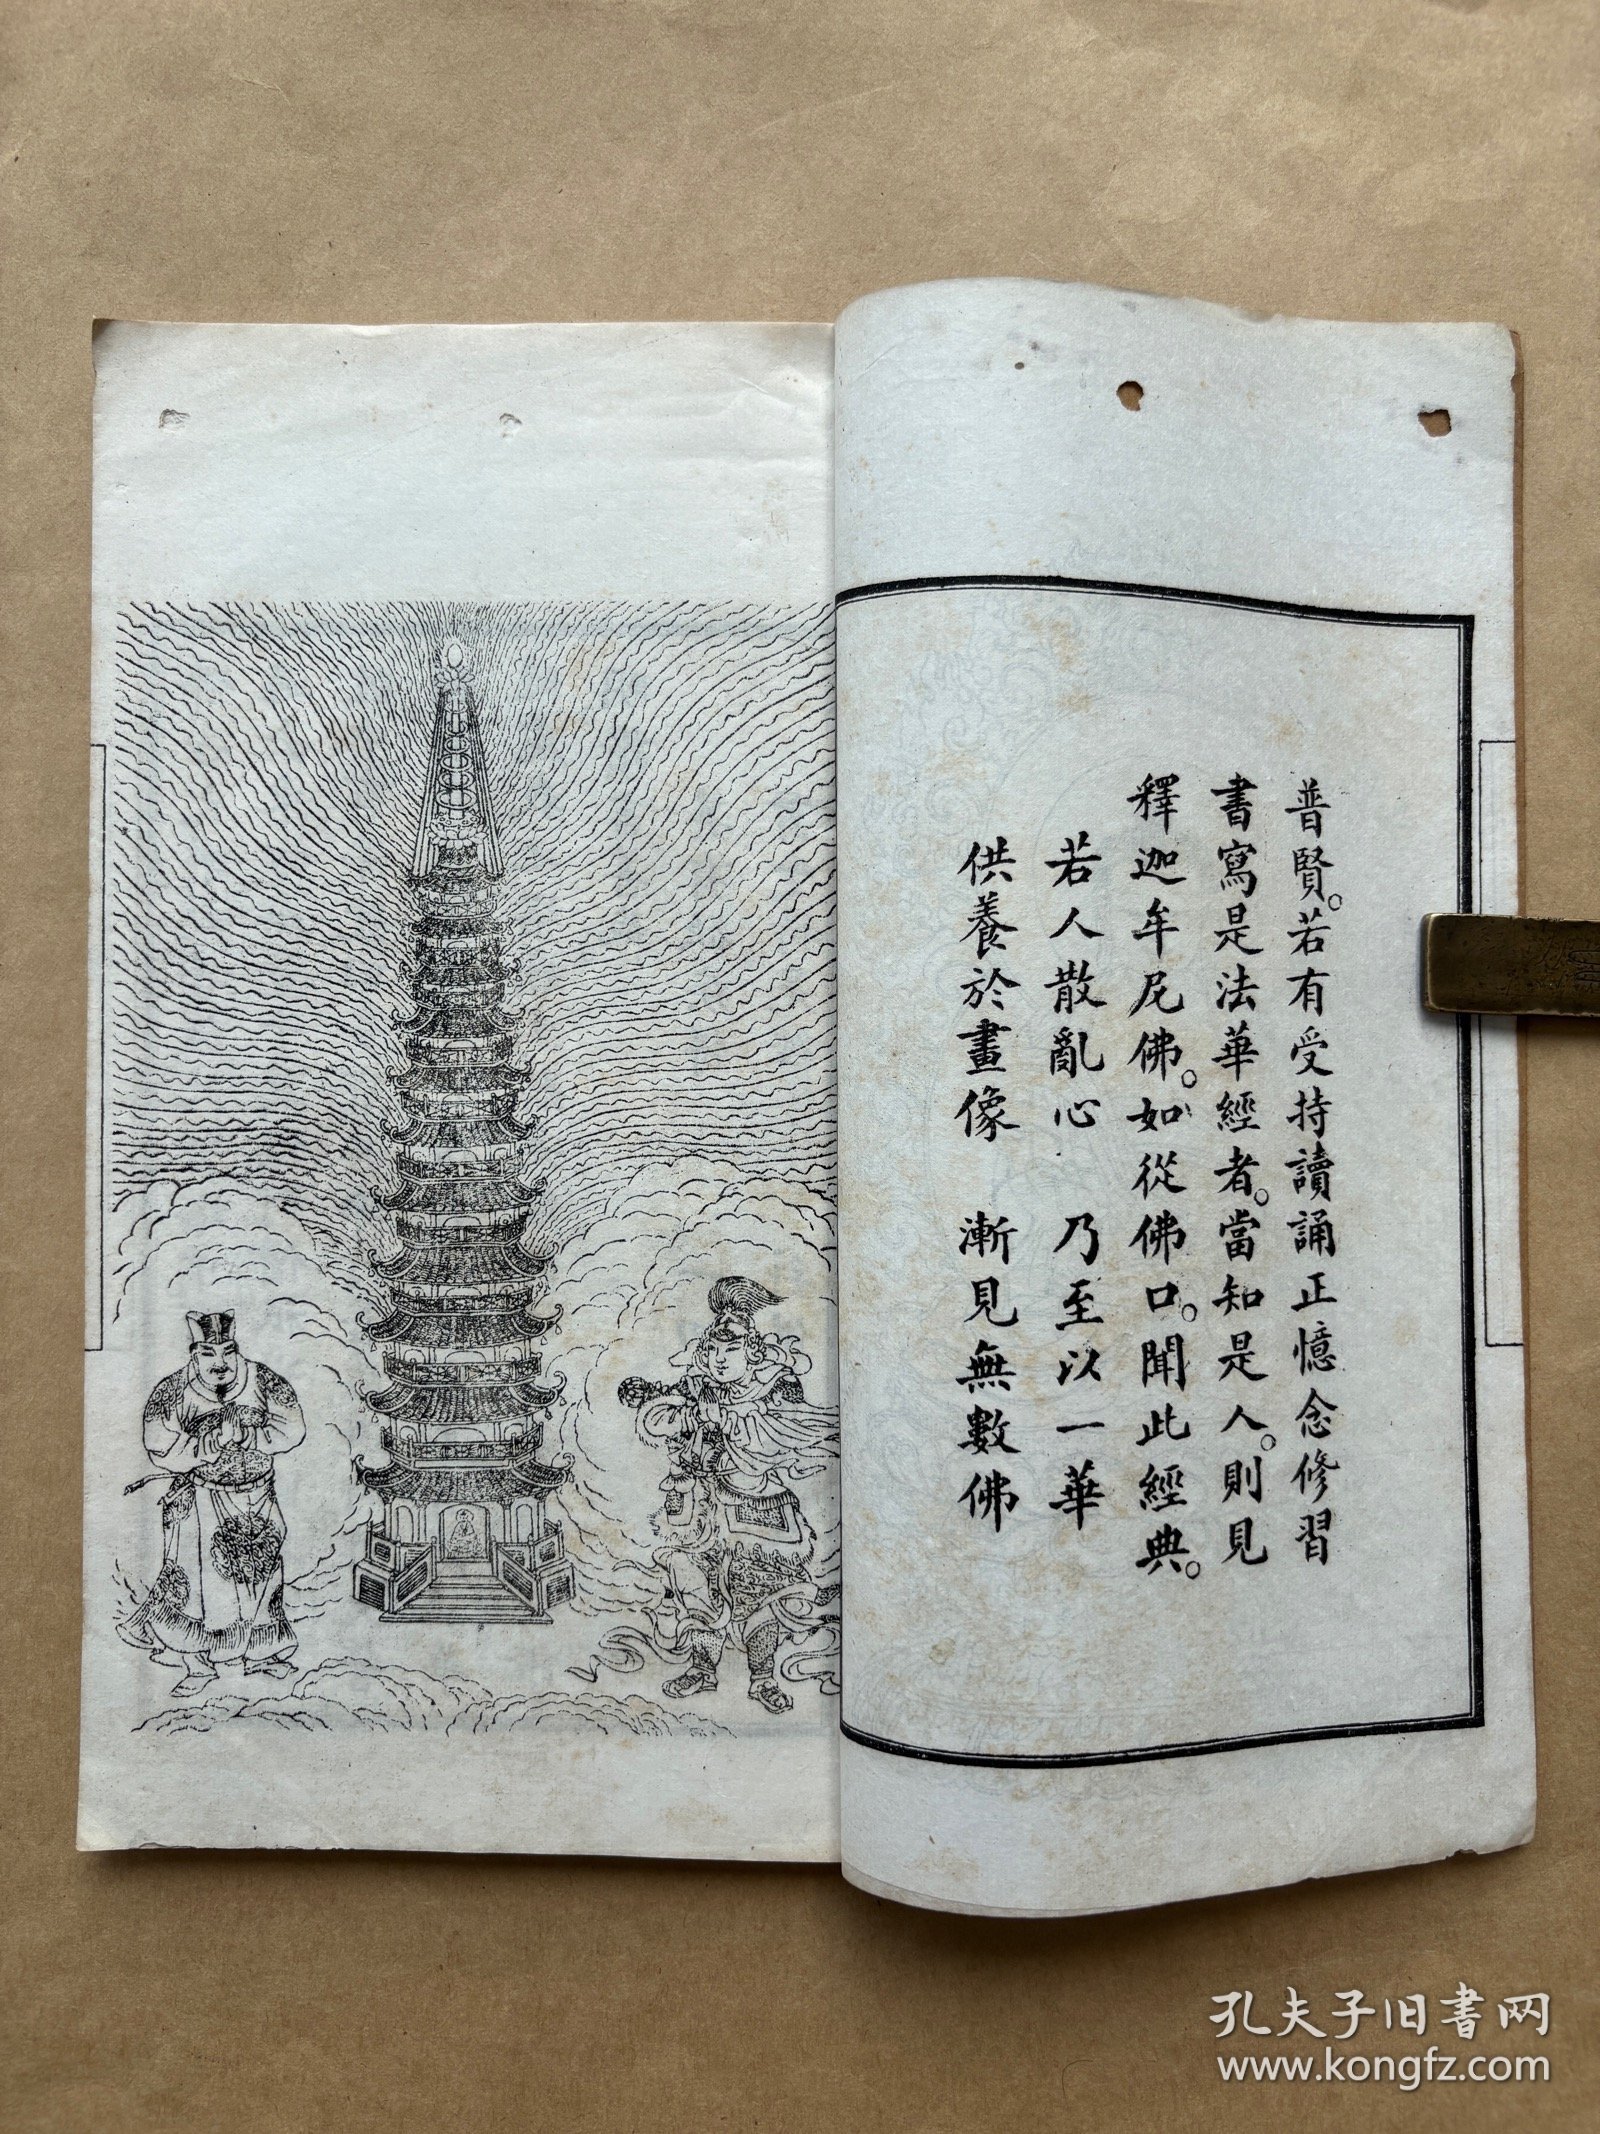 普賢。若有受持讀誦正憶念修習
書寫是法華經者。當知是人。則見
釋迦牟尼佛。如從佛口。聞此經典。
若人散亂心　乃至以一華
供養於畫像　漸見無數佛
孔夫子旧书网
www.kongfz.com